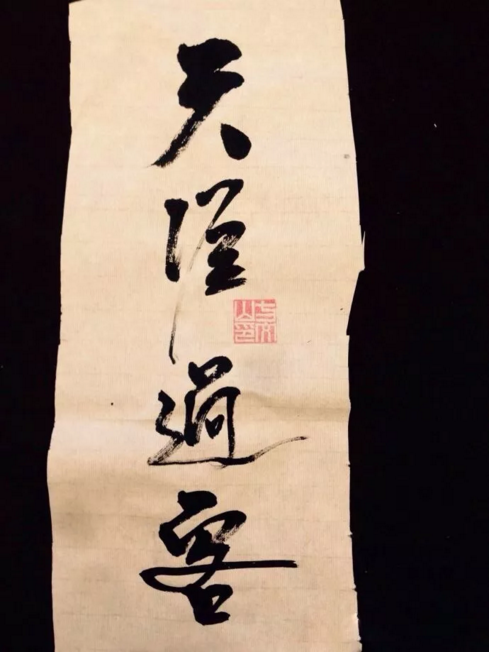 天涯過客